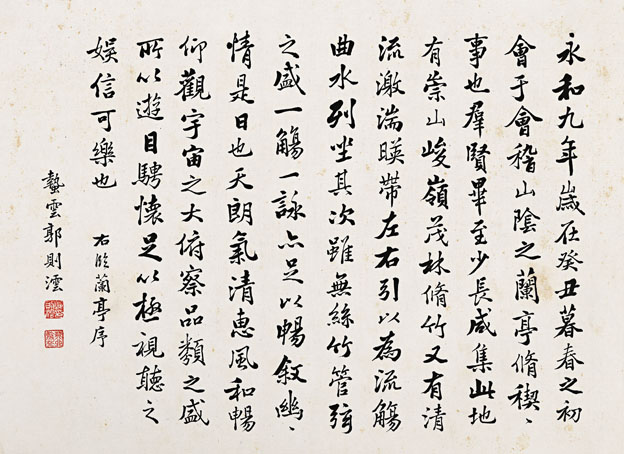 永和九年歲在癸丑暮春之初
會于會稽山陰之蘭亭脩稧、
事也羣賢畢至少長咸集此地
有崇山峻嶺茂林脩竹又有清
流激湍暎帶左右引以為流觴
曲水列坐其次雖無絲竹管弦
之盛一觴一詠亦足以暢敘幽、
情是日也天朗氣清惠風和暢
仰觀宇宙之大俯察品類之盛
所以遊目騁懷足以極視聽之
娛信可樂也
右臨蘭亭序
蟄雲郭則澐